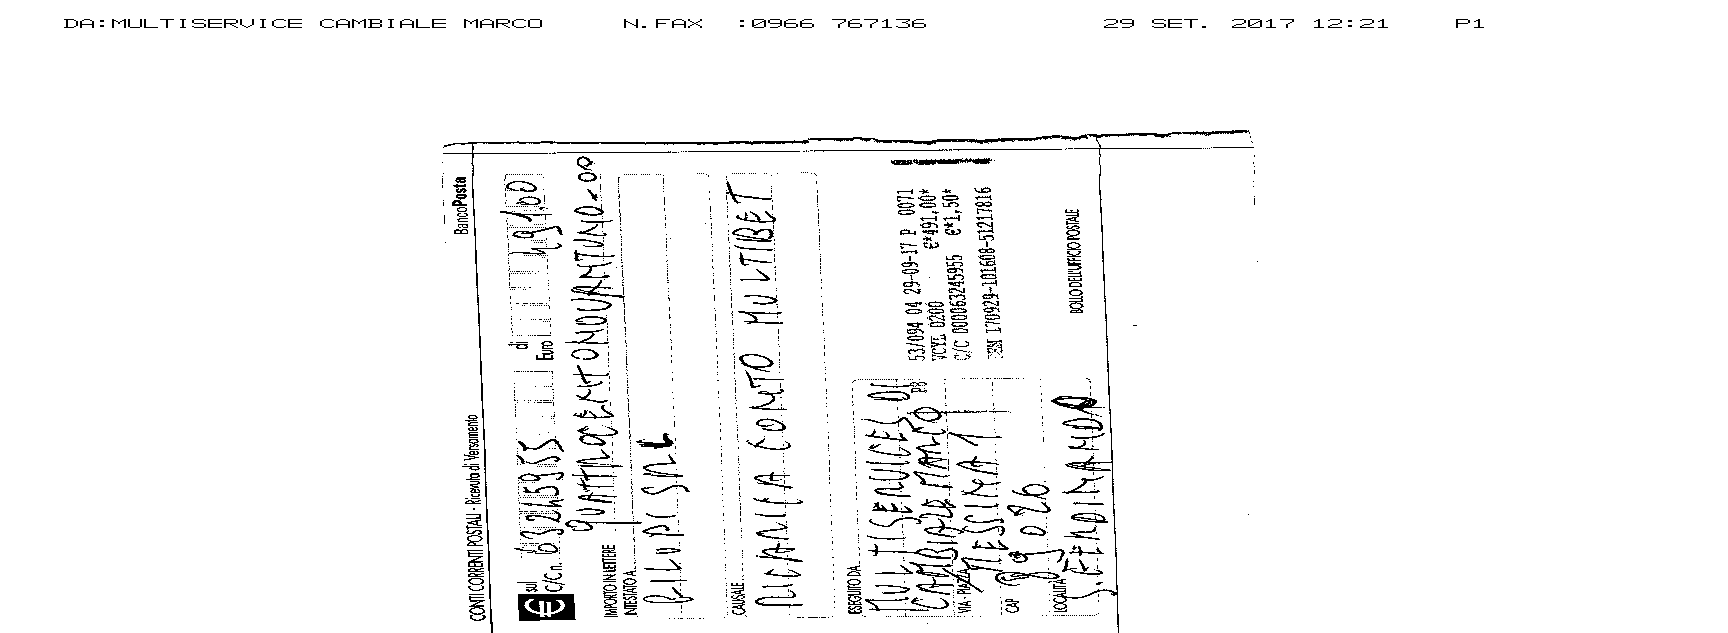 DA:MULTISERVICE CAMBIALE MARCO N.FAX :0966 767136 29 SET. 2017 12:21 P1
CONTI CORRENTI POSTALI - Ricevuta di Versamento BancoPosta
€ sul C/C n. 63245955 di Euro 491,00
IMPORTO IN LETTERE QUATTROCENTONOVANTUNO-00
INTESTATO A
BILUPI SRL
CAUSALE
RICARICA CONTO MULTIBET
ESEGUITO DA
MULTISERVICES DI
CAMBIALE MARCO
VIA - PIAZZA MESSINA 1
CAP 89026
LOCALITÀ S. FERDINANDO
53/094 04 29-09-17 P 0071
VCYL 0200 €*491,00*
C/C 000063245955 €*1,50*
170929-101608-51217816
BOLLO DELL'UFFICIO POSTALE